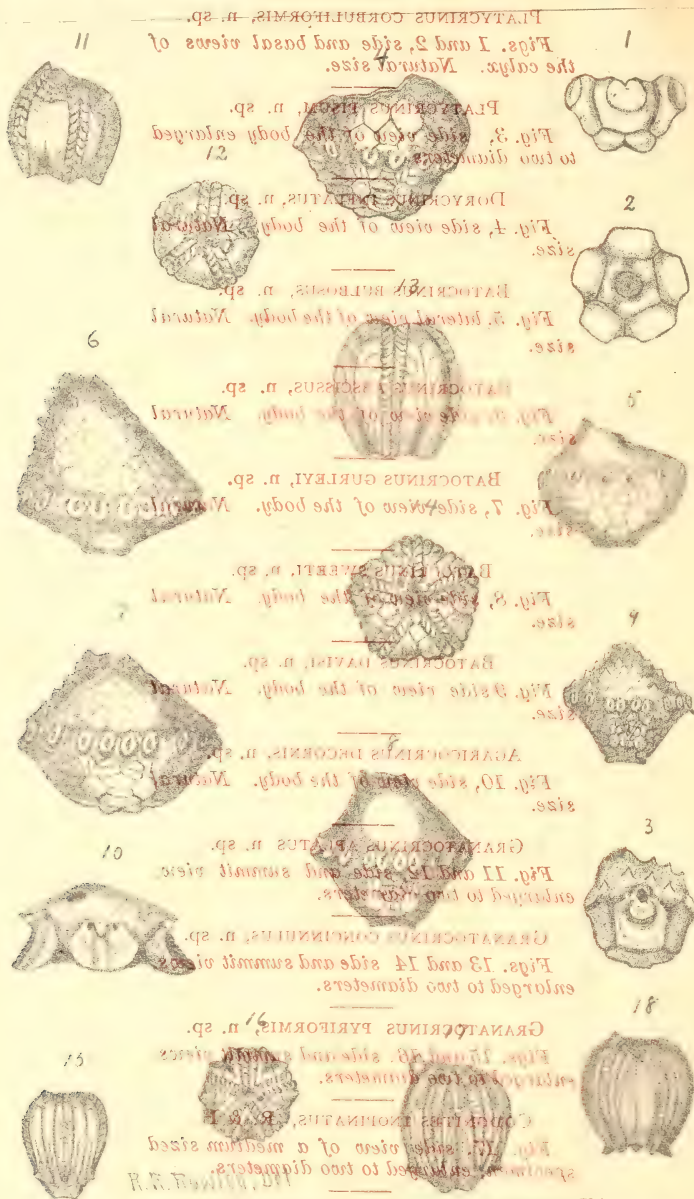 PLATYCRINUS CORBULIFORMIS, n. sp.
Figs. 1 and 2, side and basal views of
the calyx. Natural size.
11
4
1
PLATYCRINUS PISUM, n. sp.
Fig. 3, side view of the body enlarged
to two diameters.
12
DORYCRINUS INFLATUS, n. sp.
2
Fig. 4, side view of the body. Natural
size.
13
BATOCRINUS BULBOSUS, n. sp.
Fig. 5, lateral view of the body. Natural
size.
6
BATOCRINUS ABSCISSUS, n. sp.
5
Fig. 6, side view of the body. Natural
size.
BATOCRINUS GURLEYI, n. sp.
Fig. 7, side view of the body. Natural
size.
14
BATOCRINUS SWEETI, n. sp.
Fig. 8, side view of the body. Natural
size.
7
9
BATOCRINUS DAVISI, n. sp.
Fig. 9 side view of the body. Natural
size.
8
AGARICOCRINUS DECORNIS, n. sp.
Fig. 10, side view of the body. Natural
size.
10
3
GRANATOCRINUS APLATUS n. sp.
Fig. 11 and 12, side and summit view
enlarged to two diameters.
GRANATOCRINUS CONCINNULUS, n. sp.
Figs. 13 and 14 side and summit views
enlarged to two diameters.
18
16
17
GRANATOCRINUS PYRIFORMIS, n. sp.
15
Figs. 15 and 16. side and summit views
enlarged to two diameters.
CODONITES INOPINATUS,
Fig. 17. side view of a medium sized
specimen, enlarged to two diameters.